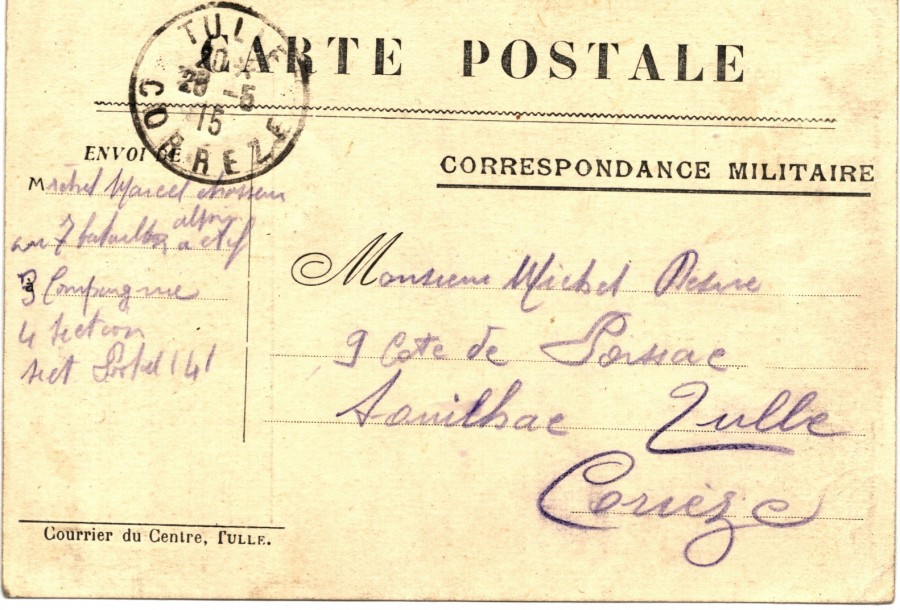 CARTE POSTALE
TULLE
20
28 -5
15
CORREZE
ENVOI DE
CORRESPONDANCE MILITAIRE
Michel Marcel chasseur
alpin
au 7 bataillon actif
3 Compagnie
4 section
sect Postal 141
Monsieur Michel
9 Cote de Poissac
Souilhac Tulle
Corrèze
Courrier du Centre, TULLE.